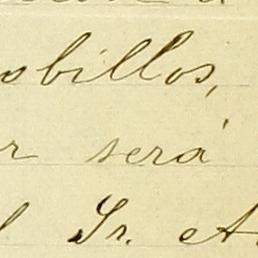 sbillos,
r será
l Sr. A